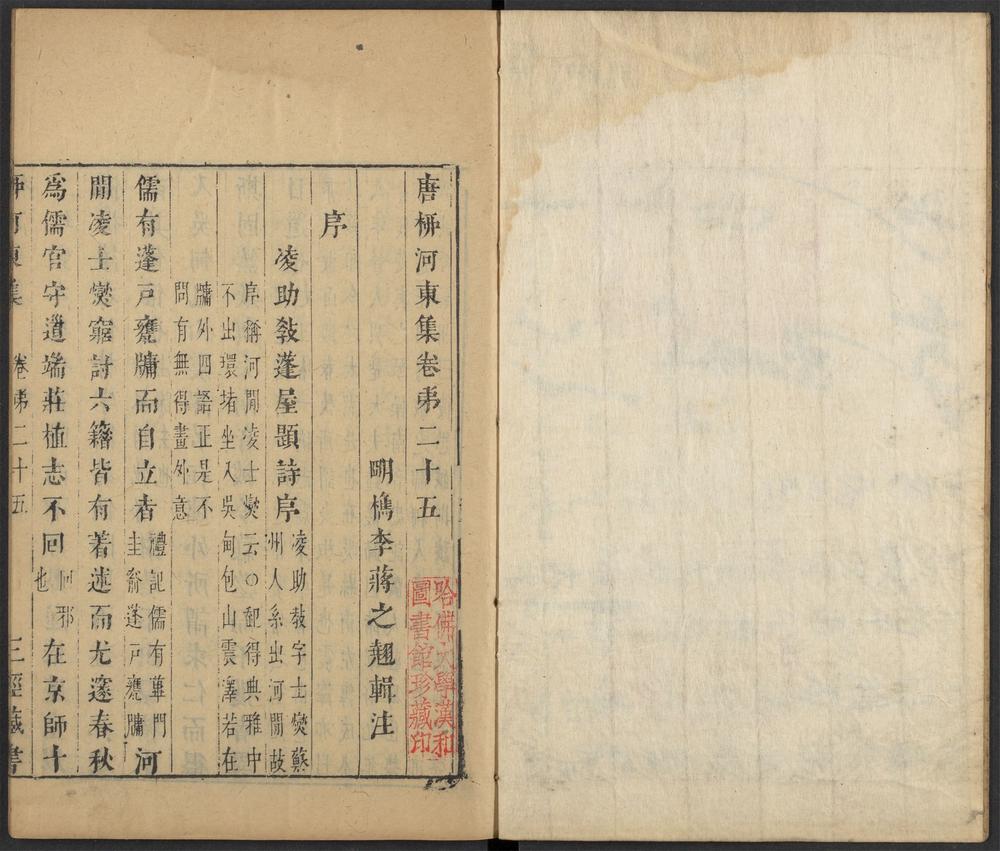 唐柳河東集卷第二十五
明檇李蔣之翹輯注
序
凌助敎蓬屋題詩序
凌助敎字士燮蘇
州人系出河間故
序稱河間凌士燮云○觀得典雅中
不出環堵坐入吳甸包山震澤若在
牖外四語正是不
問有無得畫外意
儒有蓬戶甕牖而自立者
禮記儒有蓽門
圭窬蓬戶甕牖
河
間凌士燮窮討六籍皆有著述而尤邃春秋
爲儒官守道端莊植志不回
回邪
也
在京師十
柳河東集
卷第二十五
三徑藏書
哈佛大學漢和
圖書館珍藏印